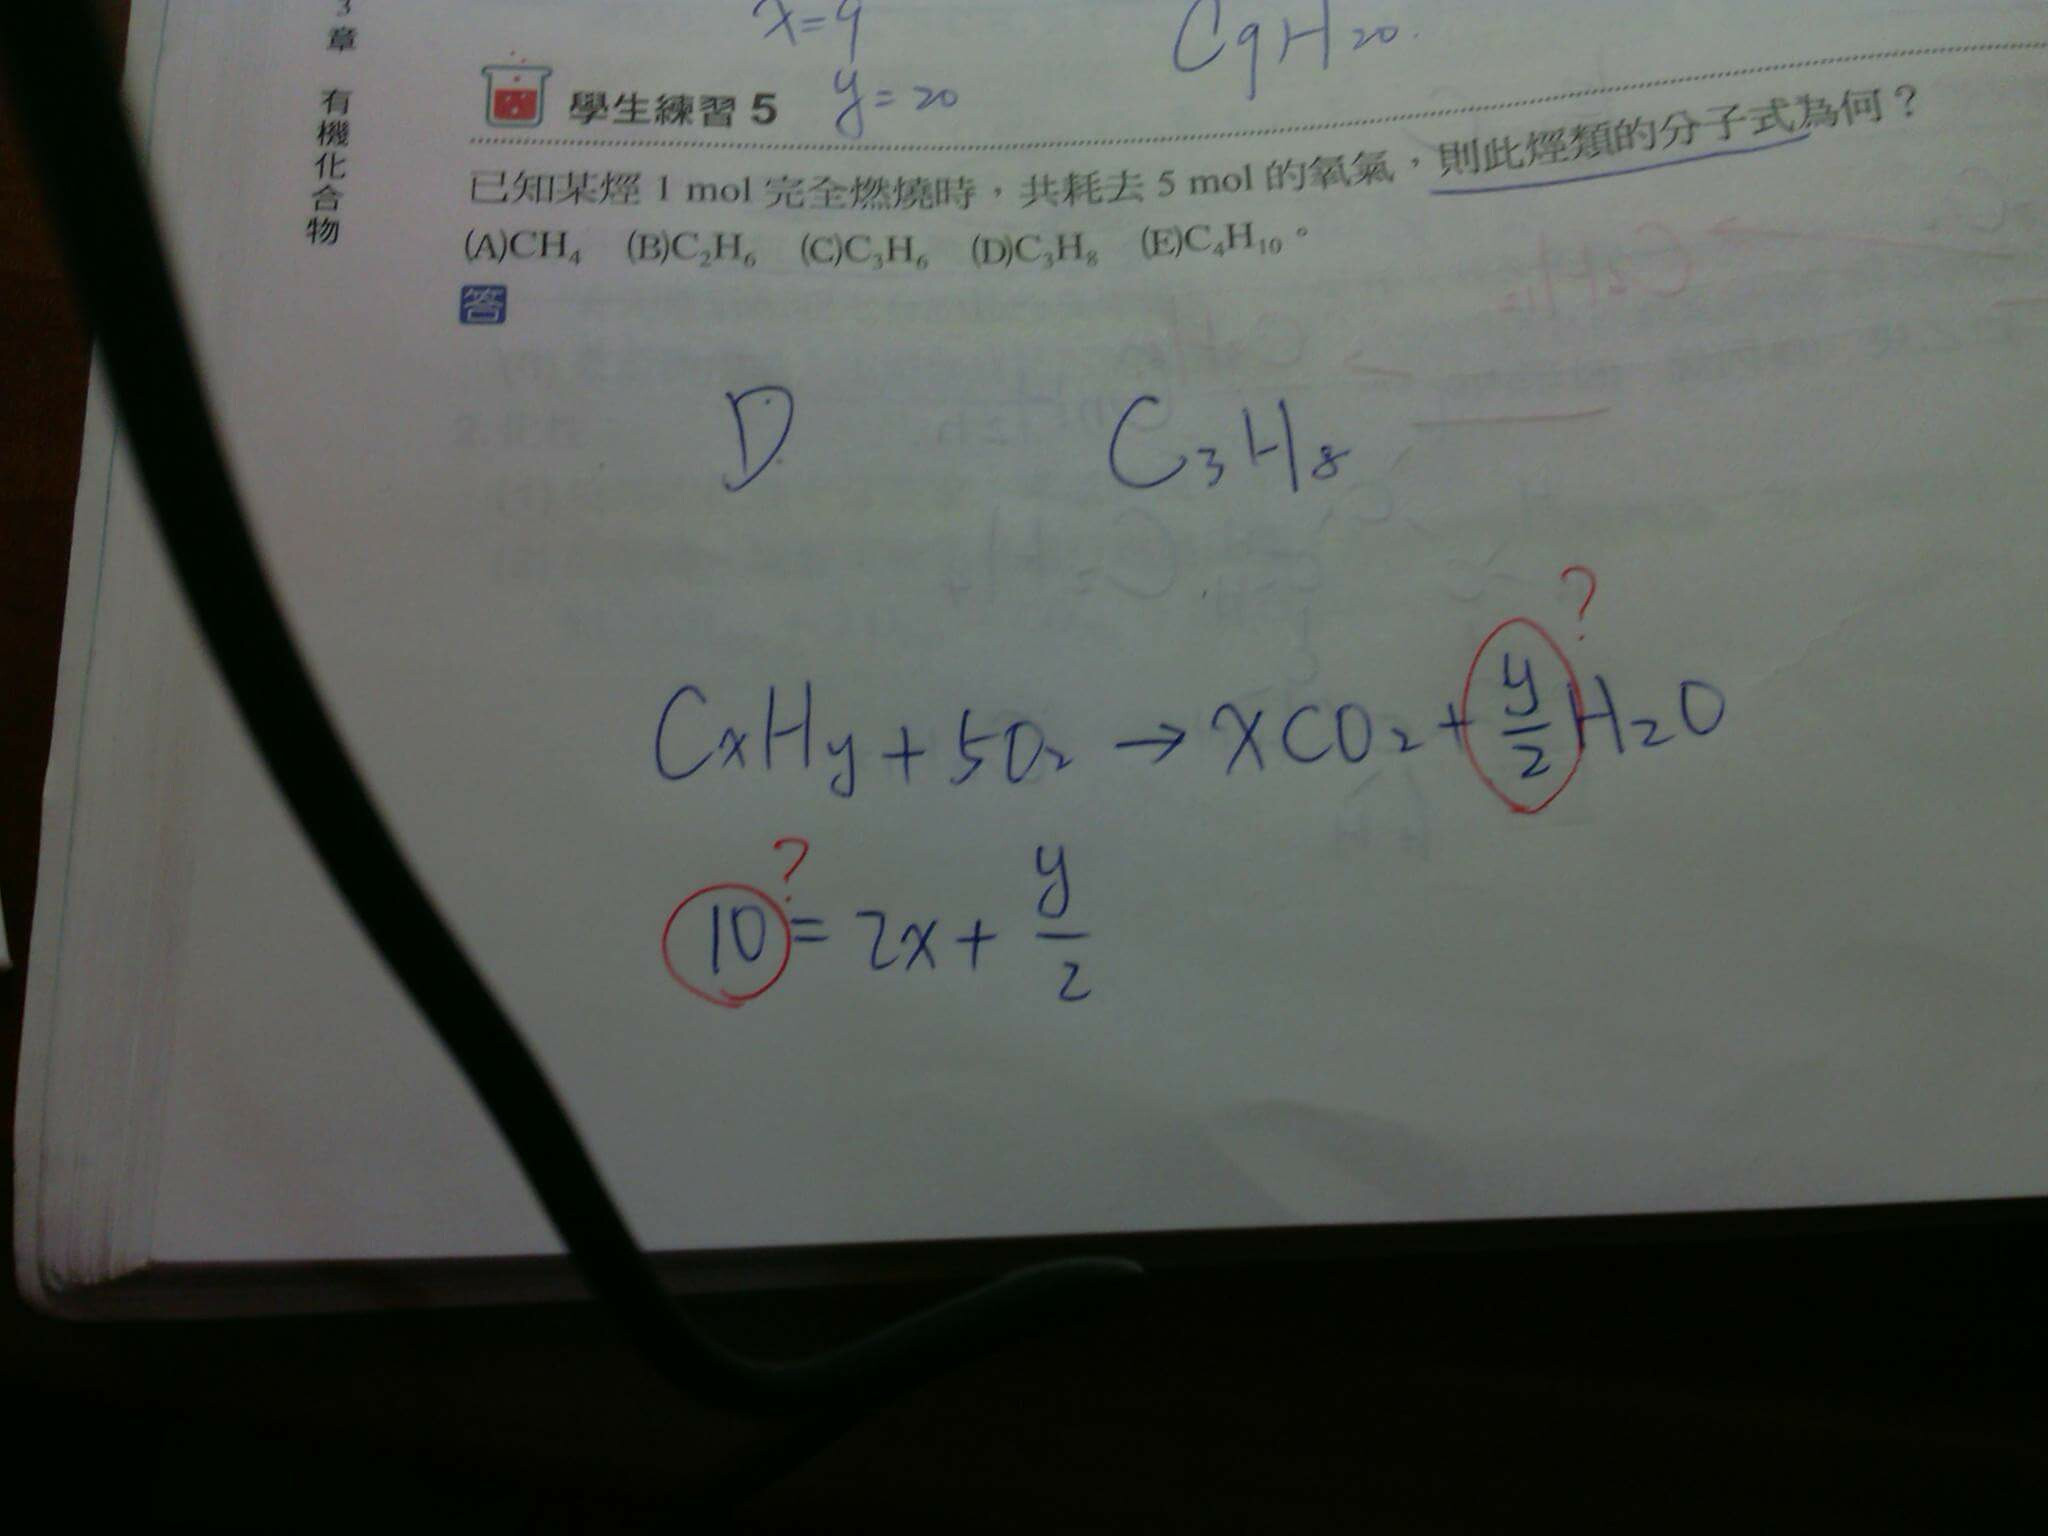 3章 有機化合物
x=9
y=20
C9H20.
學生練習5
已知某烴 1 mol 完全燃燒時,共耗去 5 mol 的氧氣,則此烴類的分子式為何?
(A)CH₄ (B)C₂H₆ (C)C₃H₆ (D)C₃H₈ (E)C₄H₁₀。
答
D C₃H₈
?
CxHy+5O₂→XCO₂+y/2H₂O
?
10=2x+y/2